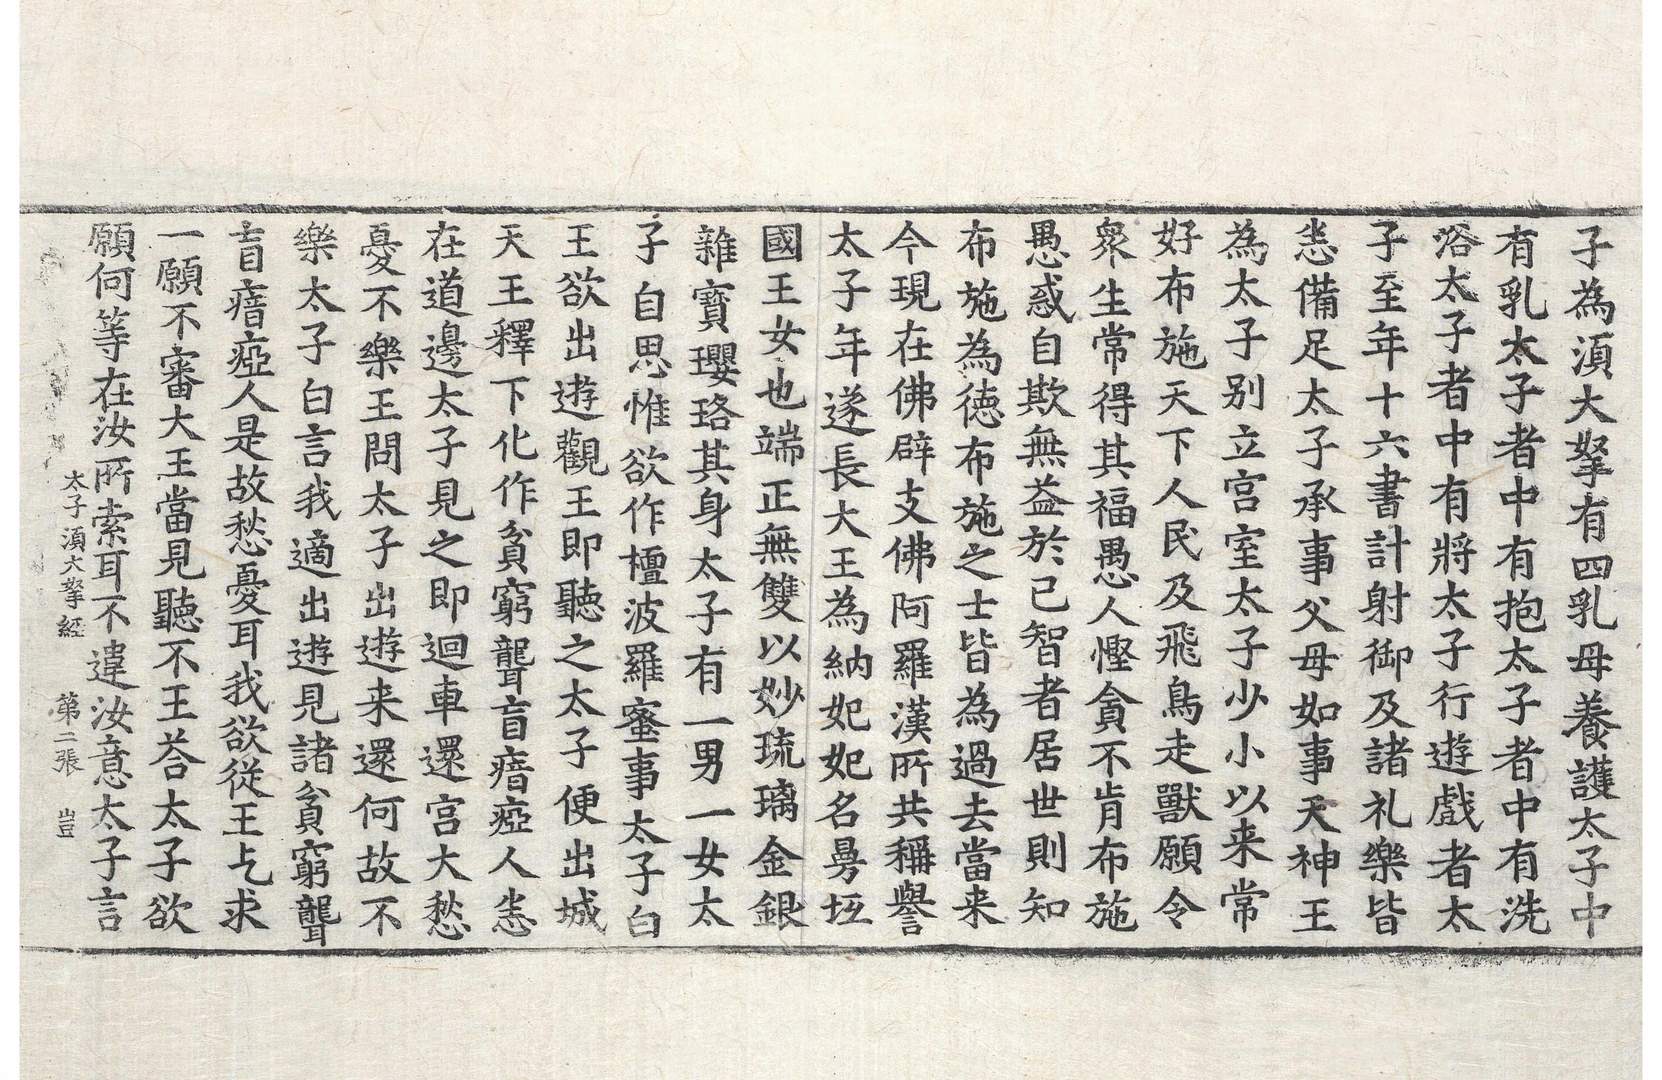 子為湏大拏有四乳母養護太子中
有乳太子者中有抱太子者中有洗
浴太子者中有將太子行遊戲者太
子至年十六書計射御及諸礼樂皆
悉備足太子承事父母如事天神王
為太子別立宮室太子少小以来常
好布施天下人民及飛鳥走獸願令
衆生常得其福愚人慳貪不肯布施
愚惑自欺無益於己智者居世則知
布施為德布施之士皆為過去當来
今現在佛辟支佛阿羅漢所共稱譽
太子年遂長大王為納妃妃名曼坻
國王女也端正無雙以妙琉璃金銀
雜寶瓔珞其身太子有一男一女太
子自思惟欲作檀波羅蜜事太子白
王欲出遊觀王即聽之太子便出城
天王釋下化作貧窮聾盲瘖瘂人悉
在道邊太子見之即迴車還宮大愁
憂不樂王問太子出遊来還何故不
樂太子白言我適出遊見諸貧窮聾
盲瘖瘂人是故愁憂耳我欲從王乞求
一願不審大王當見聽不王荅太子欲
願何等在汝所索耳不違汝意太子言
太子湏大拏經 第二張 豈